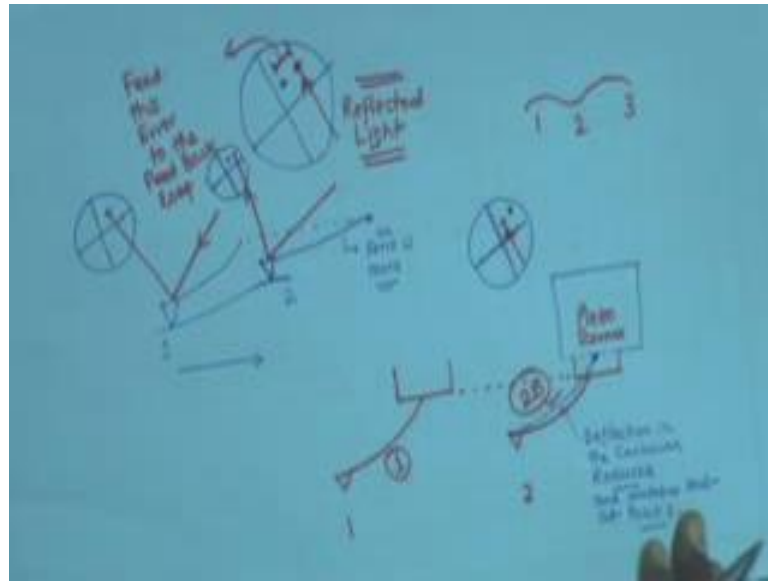 Feed
this
Error
to the
Feed Back
Loop
Reflected
Light
1 2 3
1
2
Force is
more
Piezo
Scanner
1
2B
1
2
Deflection in
the Cantilever
Reduced